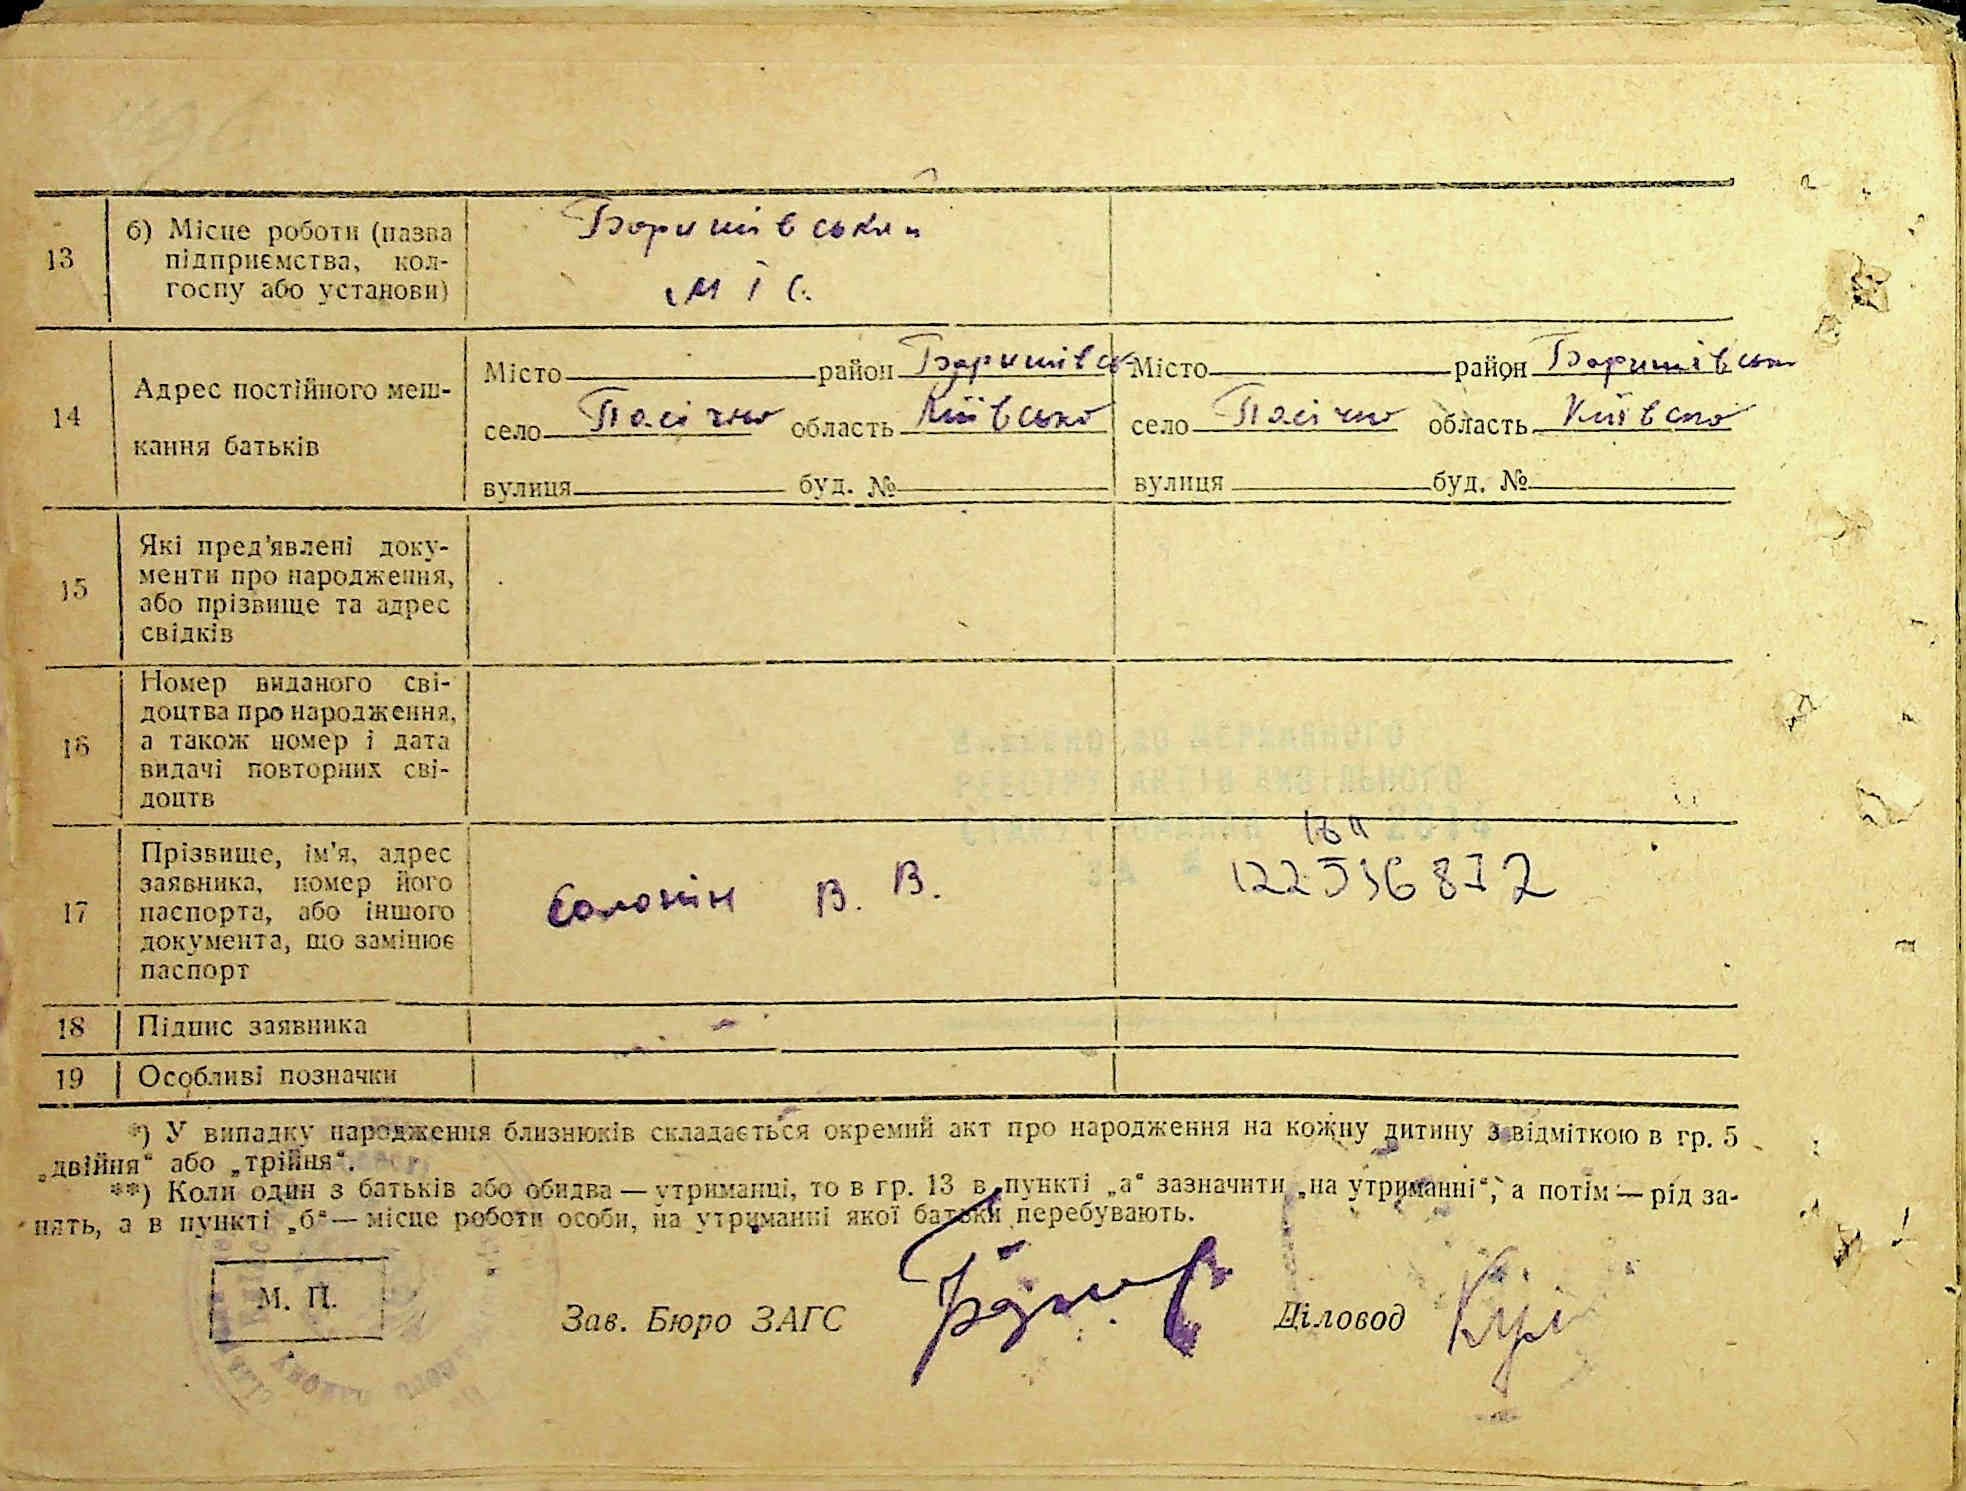 13
б) Місце роботи (назва
підприємства, кол-
госпу або установи)
Баришівський
М Т С.
14
Адрес постійного меш-
кання батьків
Місто район Баришівськ
село Пасічно область Київсько
вулиця буд. №
Місто район Баришівськ
село Пасічно область Київсько
вулиця буд. №
15
Які пред'явлені доку-
менти про народження,
або прізвище та адрес
свідків
16
Номер виданого сві-
доцтва про народження,
а також номер і дата
видачі повторних сві-
доцтв
ДО ДЕРЖАВНОГО
РЕЄСТРУ АКТІВ ЦИВІЛЬНОГО
СТАНУ ГРОМАДЯН 2014
17
Прізвище, ім'я, адрес
заявника, номер його
паспорта, або іншого
документа, що замінює
паспорт
Солонін В. В.
18
Підпис заявника
19
Особливі позначки
*) У випадку народження близнюків складається окремий акт про народження на кожну дитину з відміткою в гр. 5
„двійня“ або „трійня“.
**) Коли один з батьків або обидва — утриманці, то в гр. 13 в пункті „а“ зазначити „на утриманні“, а потім — рід за-
нять, а в пункті „б“ — місце роботи особи, на утриманні якої батьки перебувають.
М. П.
Зав. Бюро ЗАГС
Діловод